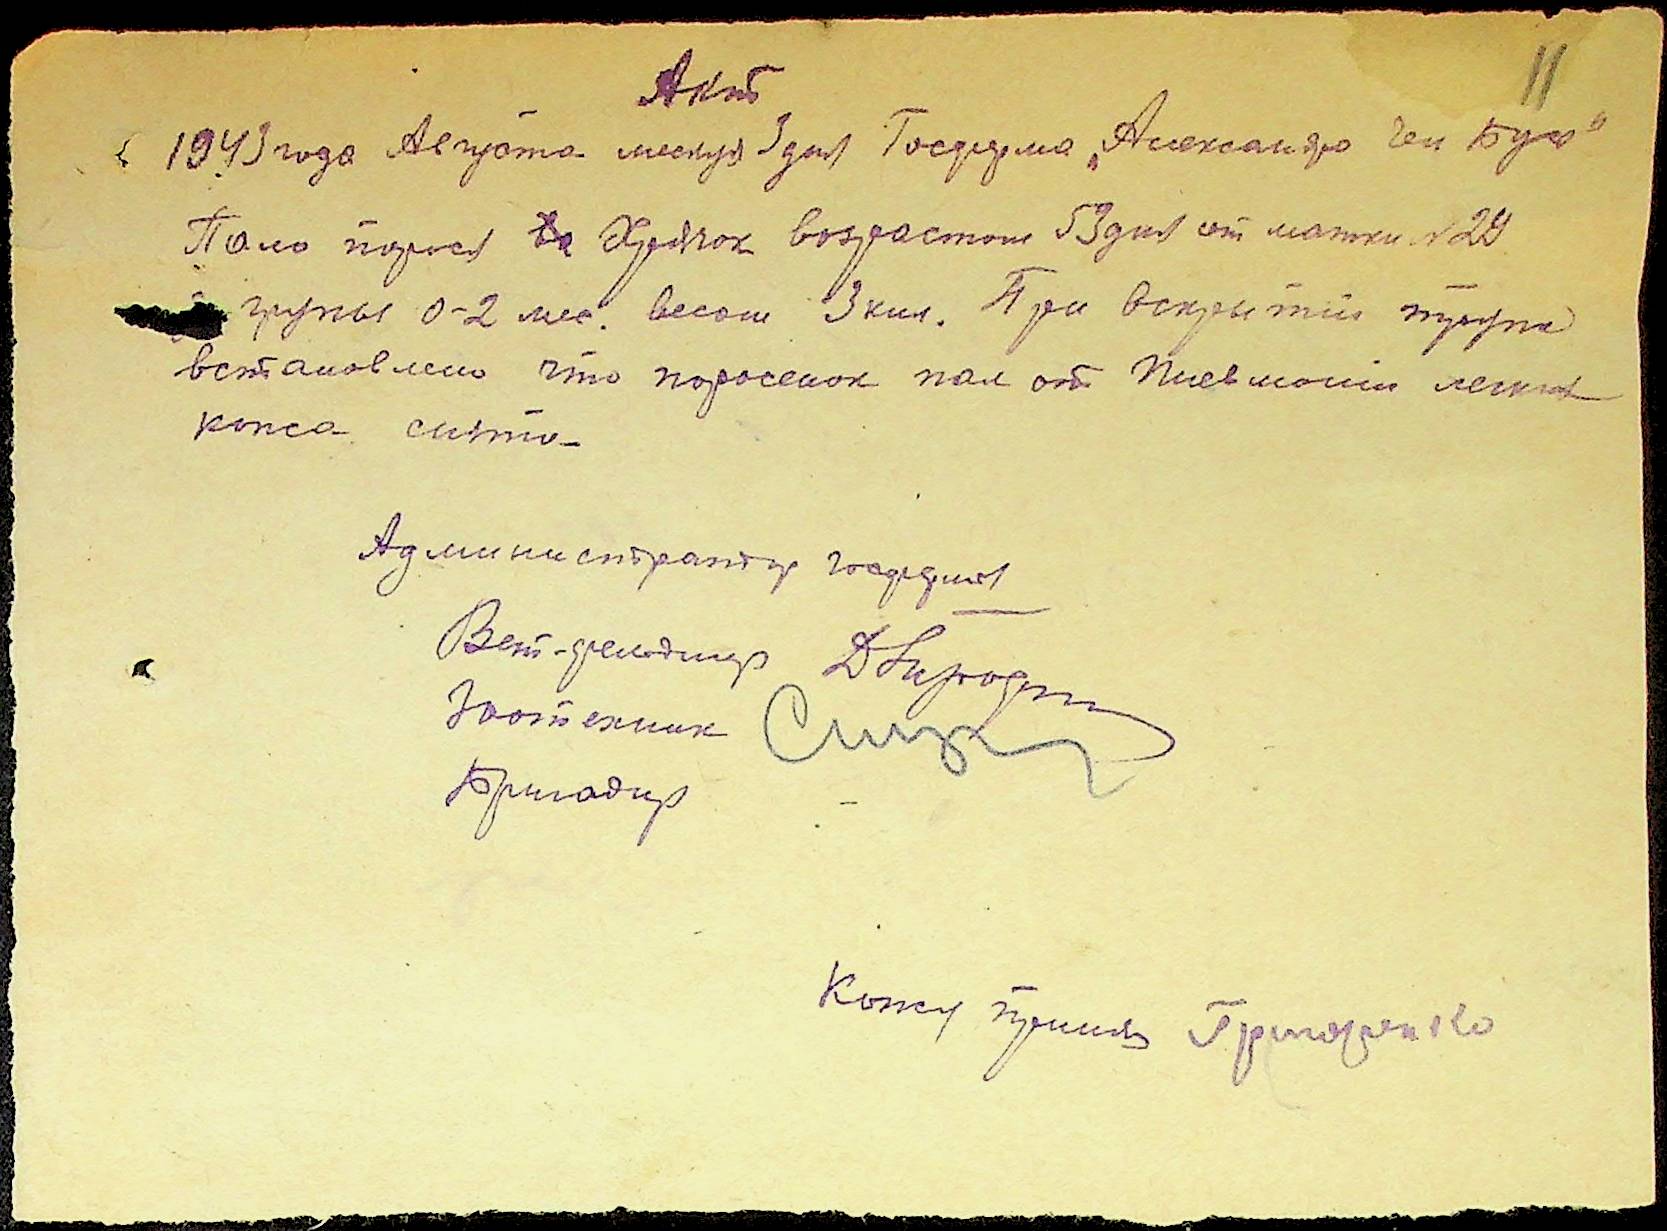 11
Акт
1943 года Августа месяца 3 дня Госферма „Александра чел Бую"
Пало порося Хрячок возрастом 53 дня от матки №29
групы 0-2 мес. весом 3 кил. При вскрытии трупа
встановлено что поросенок пал от Пневмонии легких
кожа снята
Администратор госфермы
Вет-фельдшер
Зоотехник
Бригадир
Кожу принял Григоренко